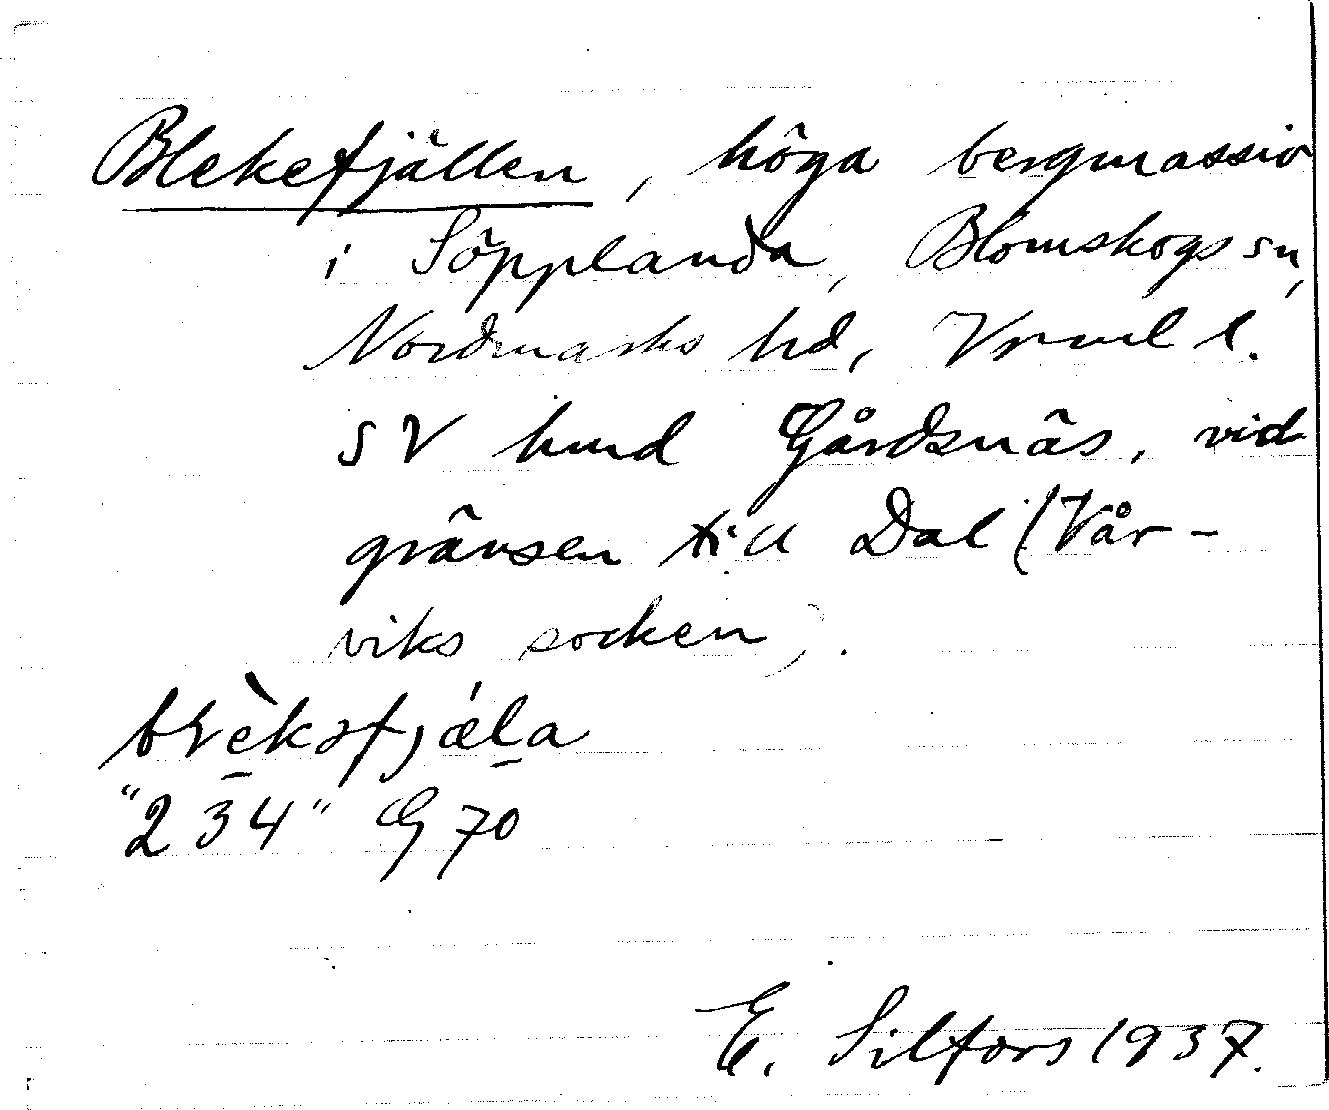 Blekefjällen, höga bergmassiv
i Söpplanda, Blomskogs sn,
Nordmarks hd, Vrml l.
SV hmd Gårdsnäs, vid
gränsen till Dal (Vår-
viks socken).
blèkəfjæ̀la
"234" G 70
E. Silfors 1937.